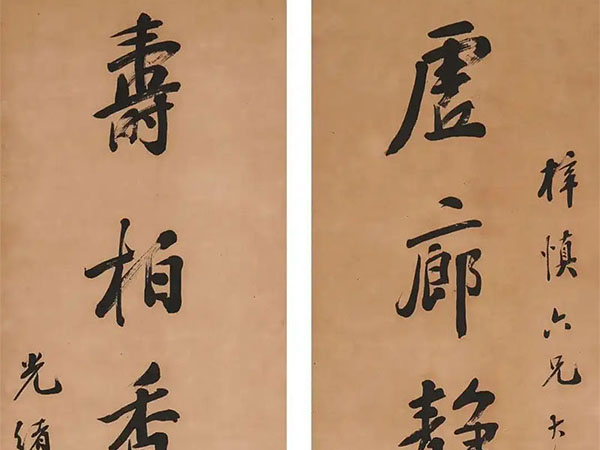 梓慎六兄大
虚廊静
壽柏香
光緒